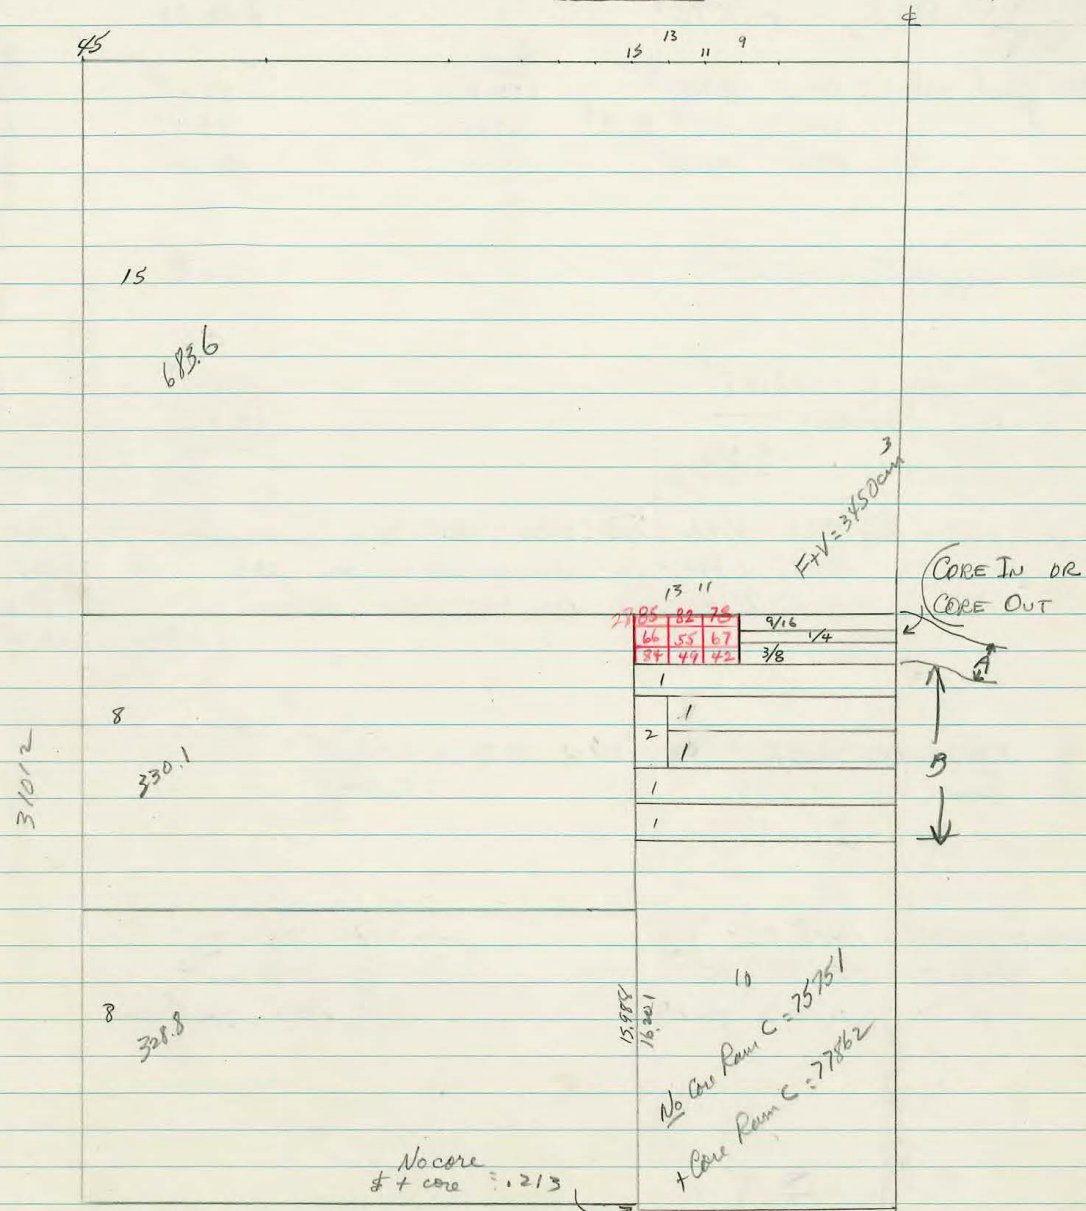 ℄
45
15 13 11 9
15
683.6
3
F+V=3450cm
CORE IN OR
CORE OUT
13 11
85 82 78
66 55 67
84 49 42
9/16
1/4
3/8
A
1
1
2
1
B
1
1
8
330.1
31012
8
328.8
15.988
16.201
10
No Core Ram C = 75751
+ Core Ram C = 77862
No core
+ core = .213